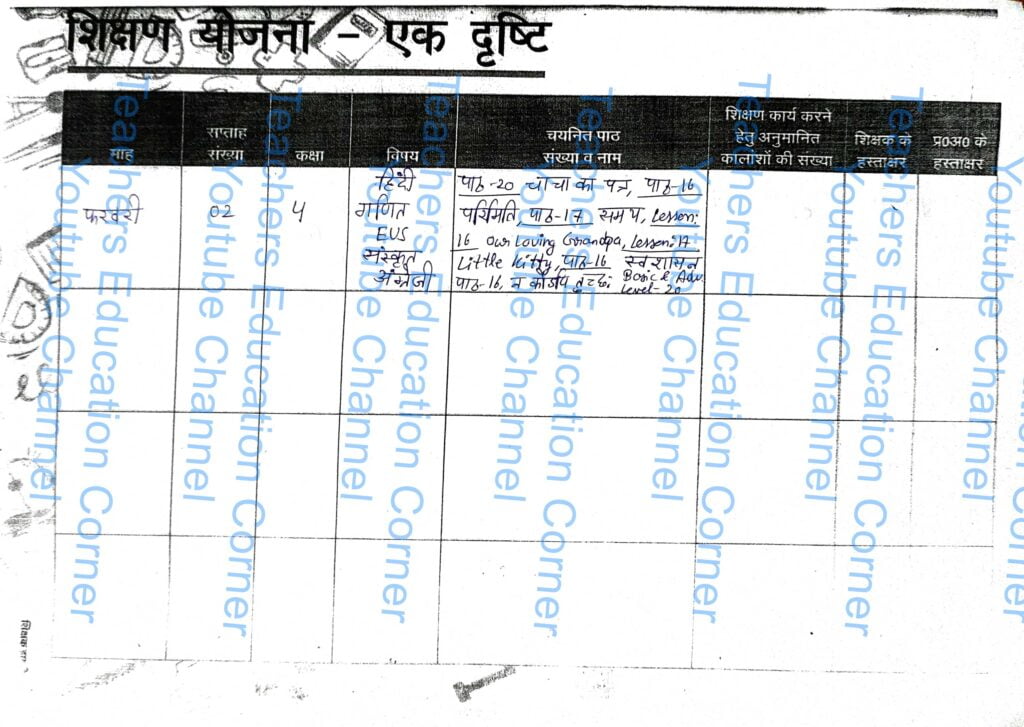 शिक्षण योजना - एक दृष्टि
माह
सप्ताह
संख्या
कक्षा
विषय
चयनित पाठ
संख्या व नाम
शिक्षण कार्य करने
हेतु अनुमानित
कालांशों की संख्या
शिक्षक के
हस्ताक्षर
प्र0अ0 के
हस्ताक्षर
फरवरी
02
4
हिंदी
गणित
EVS
संस्कृत
अंग्रेजी
पाठ-20 चाचा का पत्र, पाठ-16
परिमिति, पाठ-17 समय, Lesson:
16 Our Loving Grandpa, Lesson:17
Little Kitty, पाठ-16 स्वशासन
पाठ-16, न कोऽपि तुच्छः Basic & Adv.
Level-20
Teachers Education Corner
Youtube Channel
Teachers Education Corner
Youtube Channel
Teachers Education Corner
Youtube Channel
Teachers Education Corner
Youtube Channel
Teachers Education Corner
Youtube Channel
Teachers Education Corner
Youtube Channel